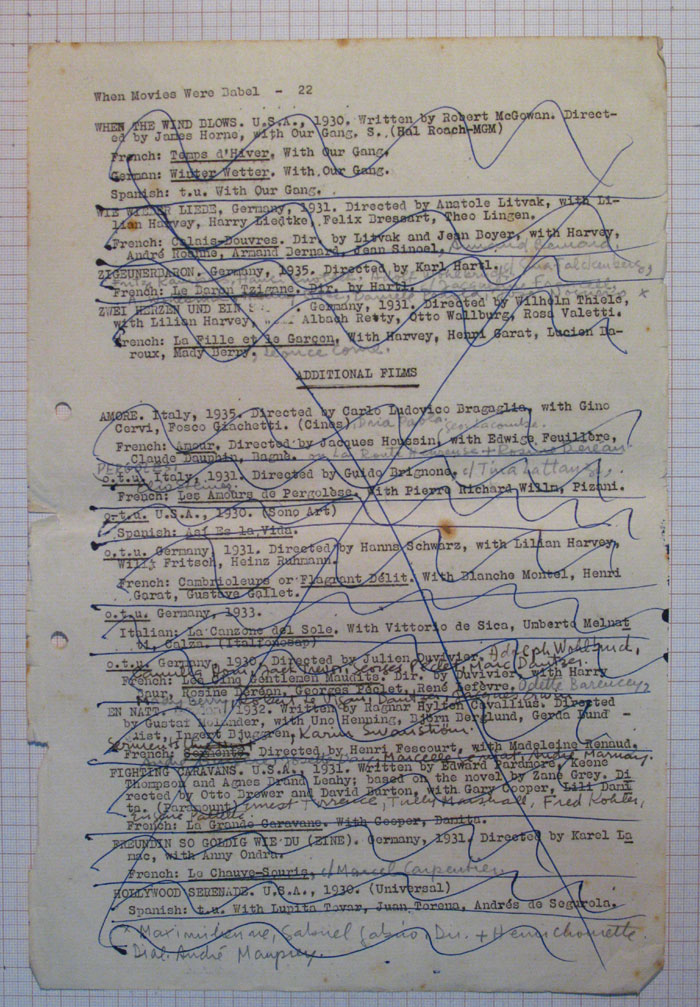 When Movies Were Babel - 22
WHEN THE WIND BLOWS. U.S.A., 1930. Written by Robert McGowan. Direct-
ed by James Horne, with Our Gang. S. (Hal Roach-MGM)
French: Temps d'Hiver. With Our Gang.
German: Winter Wetter. With Our Gang.
Spanish: t.u. With Our Gang.
WIE WIE LIEDE, Germany, 1931. Directed by Anatole Litvak, with Li-
lian Harvey, Harry Liedtke, Felix Bressart, Theo Lingen.
French: Calais-Douvres. Dir. by Litvak and Jean Boyer, with Harvey,
André Roanne, Armand Bernard, Jean Sinoel, Armand Bernard.
ZIGEUNERBARON. Germany, 1935. Directed by Karl Hartl.
French: Le Baron Tzigane. Dir. by Hartl.
ZWEI HERZEN UND EIN S Germany, 1931. Directed by Wilhelm Thiele,
with Lilian Harvey, Albach Retty, Otto Wallburg, Rosa Valetti.
French: La Fille et le Garçon. With Harvey, Henri Garat, Lucien Ba-
roux, Mady Berry,
ADDITIONAL FILMS
AMORE. Italy, 1935. Directed by Carlo Ludovico Bragaglia, with Gino
Cervi, Fosco Giachetti. (Cines)
French: Amour. Directed by Jacques Houssin, with Edwige Feuillère,
Claude Dauphin, Bagué. ou La Route Heureuse + Rosine Deréan
PERGOLESI
o.t.u. Italy, 1931. Directed by Guido Brignone, c/ Tina Lattanzi,
French: Les Amours de Pergolèse. With Pierre Richard Willm, Pizani.
o.t.u. U.S.A., 1930. (Sono Art)
Spanish: Así Es la Vida.
o.t.u. Germany, 1931. Directed by Hanns Schwarz, with Lilian Harvey,
Willy Fritsch, Heinz Ruhmann.
French: Cambrioleurs or Flagrant Délit. With Blanche Montel, Henri
Garat, Gustave Gallet.
o.t.u. Germany, 1933.
Italian: La Canzone del Sole. With Vittorio de Sica, Umberto Melnat
ti, Calza. (Italfonosap)
o.t.u. Germany, 1930. Directed by Julien Duvivier, Adolph Wohlbrück,
French: Les Cinq Gentlemen Maudits. Dir. by Duvivier, with Harry
Baur, Rosine Deréan, Georges Péclet, René Lefèvre, Odette Barencey,
EN NATT. 1932. Written by Ragnar Hylten Cavallius. Directed
by Gustaf Molander, with Uno Henning, Björn Berglund, Gerda Lund -
qist, Ingert Bjuggren, Karin Swanström.
French: Serments. Directed by Henri Fescourt, with Madeleine Renaud.
FIGHTING CARAVANS. U.S.A., 1931. Written by Edward Paramore, Keene
Thompson and Agnes Brand Leahy; based on the novel by Zane Grey. Di
rected by Otto Brower and David Burton, with Gary Cooper, Lili Dami
ta. (Paramount) Ernest Torrence, Tully Marshall, Fred Kohler,
Eugene Pallette.
French: La Grande Caravane. With Cooper, Damita.
FREUNDIN SO GOLDIG WIE DU (EINE). Germany, 1931. Directed by Karel La
mac, with Anny Ondra.
French: La Chauve-Souris, c/ Marcel Carpentier.
HOLLYWOOD SERENADE. U.S.A., 1930. (Universal)
Spanish: t.u. With Lupita Tovar, Juan Torena, Andrés de Segurola.
* Maximilienne, Gabriel Gabrio, Dir. + Henri Chomette
Dial. André Mauprey.